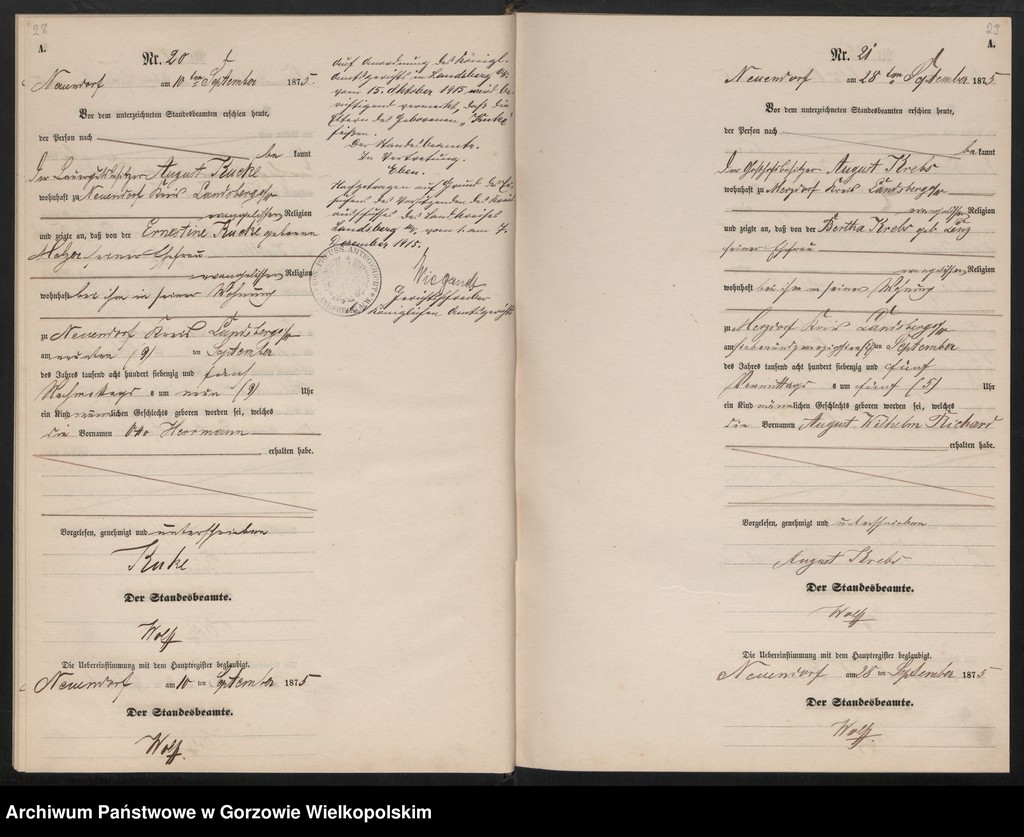 28
A.
Nr. 20
Neuendorf am 10 ten September 1875.
Vor dem unterzeichneten Standesbeamten erschien heute,
der Person nach
be kannt
August Kucke
wohnhaft zu Neuendorf Kreis Landsberg a/w
evangelischer Religion
und zeigte an, daß von der Ernestine Kucke geborenen
seiner Ehefrau
evangelischer Religion
wohnhaft bei ihm in seiner Wohnung
zu Neuendorf Kreis Landsberg a/w
am neunten (9) ten September
des Jahres tausend acht hundert siebenzig und fünf
Nachmittags um neun (9) Uhr
ein Kind männlichen Geschlechts geboren worden sei, welches
die Vornamen Otto Herrmann
erhalten habe.
Vorgelesen, genehmigt und unterschrieben
Kuke
Der Standesbeamte.
Wolff
Die Uebereinstimmung mit dem Hauptregister beglaubigt.
Neuendorf am 10 ten September 1875
Der Standesbeamte.
Wolff.
Auf Anordnung des Königl.
Amtsgerichts in Landsberg a/W.
vom 15. Oktober 1915 wird be-
richtigend vermerkt, daß die
Eltern des Geborenen „Kuke“
heißen.
Der Standesbeamte.
In Vertretung.
Nachgetragen auf Grund des
des Vorsitzenden des Kreis-
ausschusses des Landkreises
Landsberg a/W. vom 7.
Dezember 1915.
Wiegandt
Gerichtsschreiber
Königlichen Amtsgerichts
29
A.
Nr. 21
Neuendorf am 28 ten September 1875
Vor dem unterzeichneten Standesbeamten erschien heute,
der Person nach
be kannt
Der August Krebs
wohnhaft zu Merzdorf Kreis Landsberg a/w
evangelischer Religion
und zeigte an, daß von der Bertha Krebs geb. Lenz
seiner Ehefrau
evangelischer Religion
wohnhaft bei ihm in seiner Wohnung
zu Merzdorf Kreis Landsberg a/w
am siebenundzwanzigsten ten September
des Jahres tausend acht hundert siebenzig und fünf
Vormittags um fünf (5) Uhr
ein Kind männlichen Geschlechts geboren worden sei, welches
die Vornamen August Wilhelm Richard
erhalten habe.
Vorgelesen, genehmigt und unterschrieben
August Krebs
Der Standesbeamte.
Wolff
Die Uebereinstimmung mit dem Hauptregister beglaubigt.
Neuendorf am 28 ten September 1875
Der Standesbeamte.
Wolff.
Archiwum Państwowe w Gorzowie Wielkopolskim